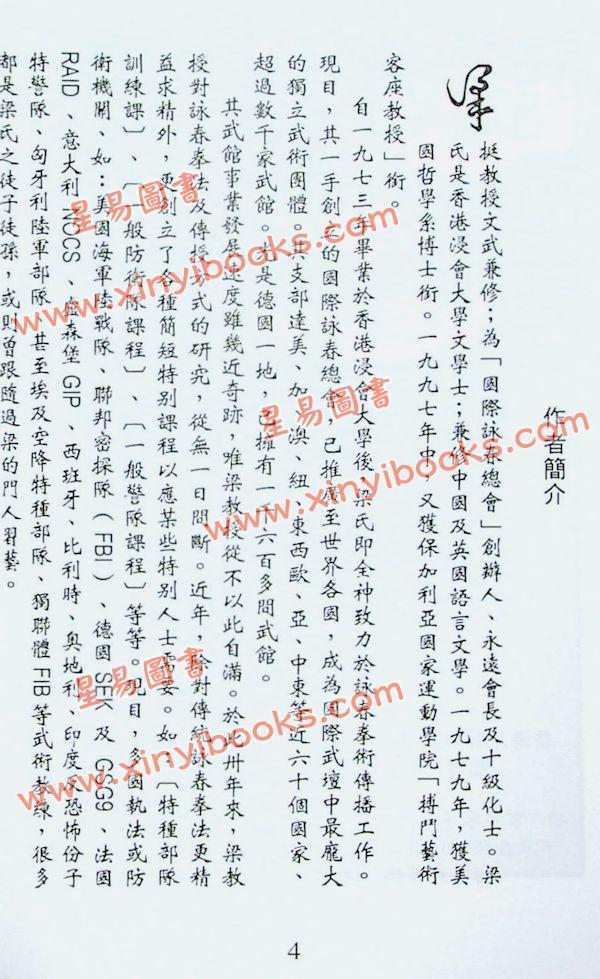 作者簡介
梁
挺教授文武兼修；為「國際詠春總會」創辦人、永遠會長及十級化士。梁
氏是香港浸會大學文學士；兼修中國及英國語言文學。一九七九年，獲美
國哲學系博士銜。一九九七年中，又獲保加利亞國家運動學院「搏鬥藝術
客座教授」銜。
自一九七三年畢業於香港浸會大學後，梁氏即全神致力於詠春拳術傳播工作。
現目，其一手創立的國際詠春總會，已推廣至世界各國，成為國際武壇中最龐大
的獨立武術團體。其支部達美、加、澳、紐、東西歐、亞、中東等近六十個國家、
超過數千家武館。光是德國一地，已擁有一千六百多間武館。
其武館事業發展速度雖幾近奇跡，唯梁教授從不以此自滿。於此卅年來，梁教
授對詠春拳法及傳授方式的研究，從無一日間斷。近年，除對傳統詠春拳法更精
益求精外，更創立了各種簡短特別課程以應某些特别人士需要。如：〔特種部隊
訓練課〕、〔一般防衛隊課程〕、〔一般警隊課程〕等等。現目，多國執法或防
衛機關、如：美國海軍陸戰隊、聯邦密探隊（FBI）、德國 SEK 及 GSG9、法國
RAID、意大利 NOCS、盧森堡 GIP 西班牙、比利時、奥地利、印度反恐怖份子
特警隊、匈牙利陸軍部隊、甚至埃及空降特種部隊、獨聯體 FIB 等武術教練，很多
都是梁氏之徒子徒孫，或則曾跟隨過梁的門人習藝。
4
星易圖書
www.xinyibooks.com
星易圖書
www.xinyibooks.com
星易圖書
www.xinyibooks.com